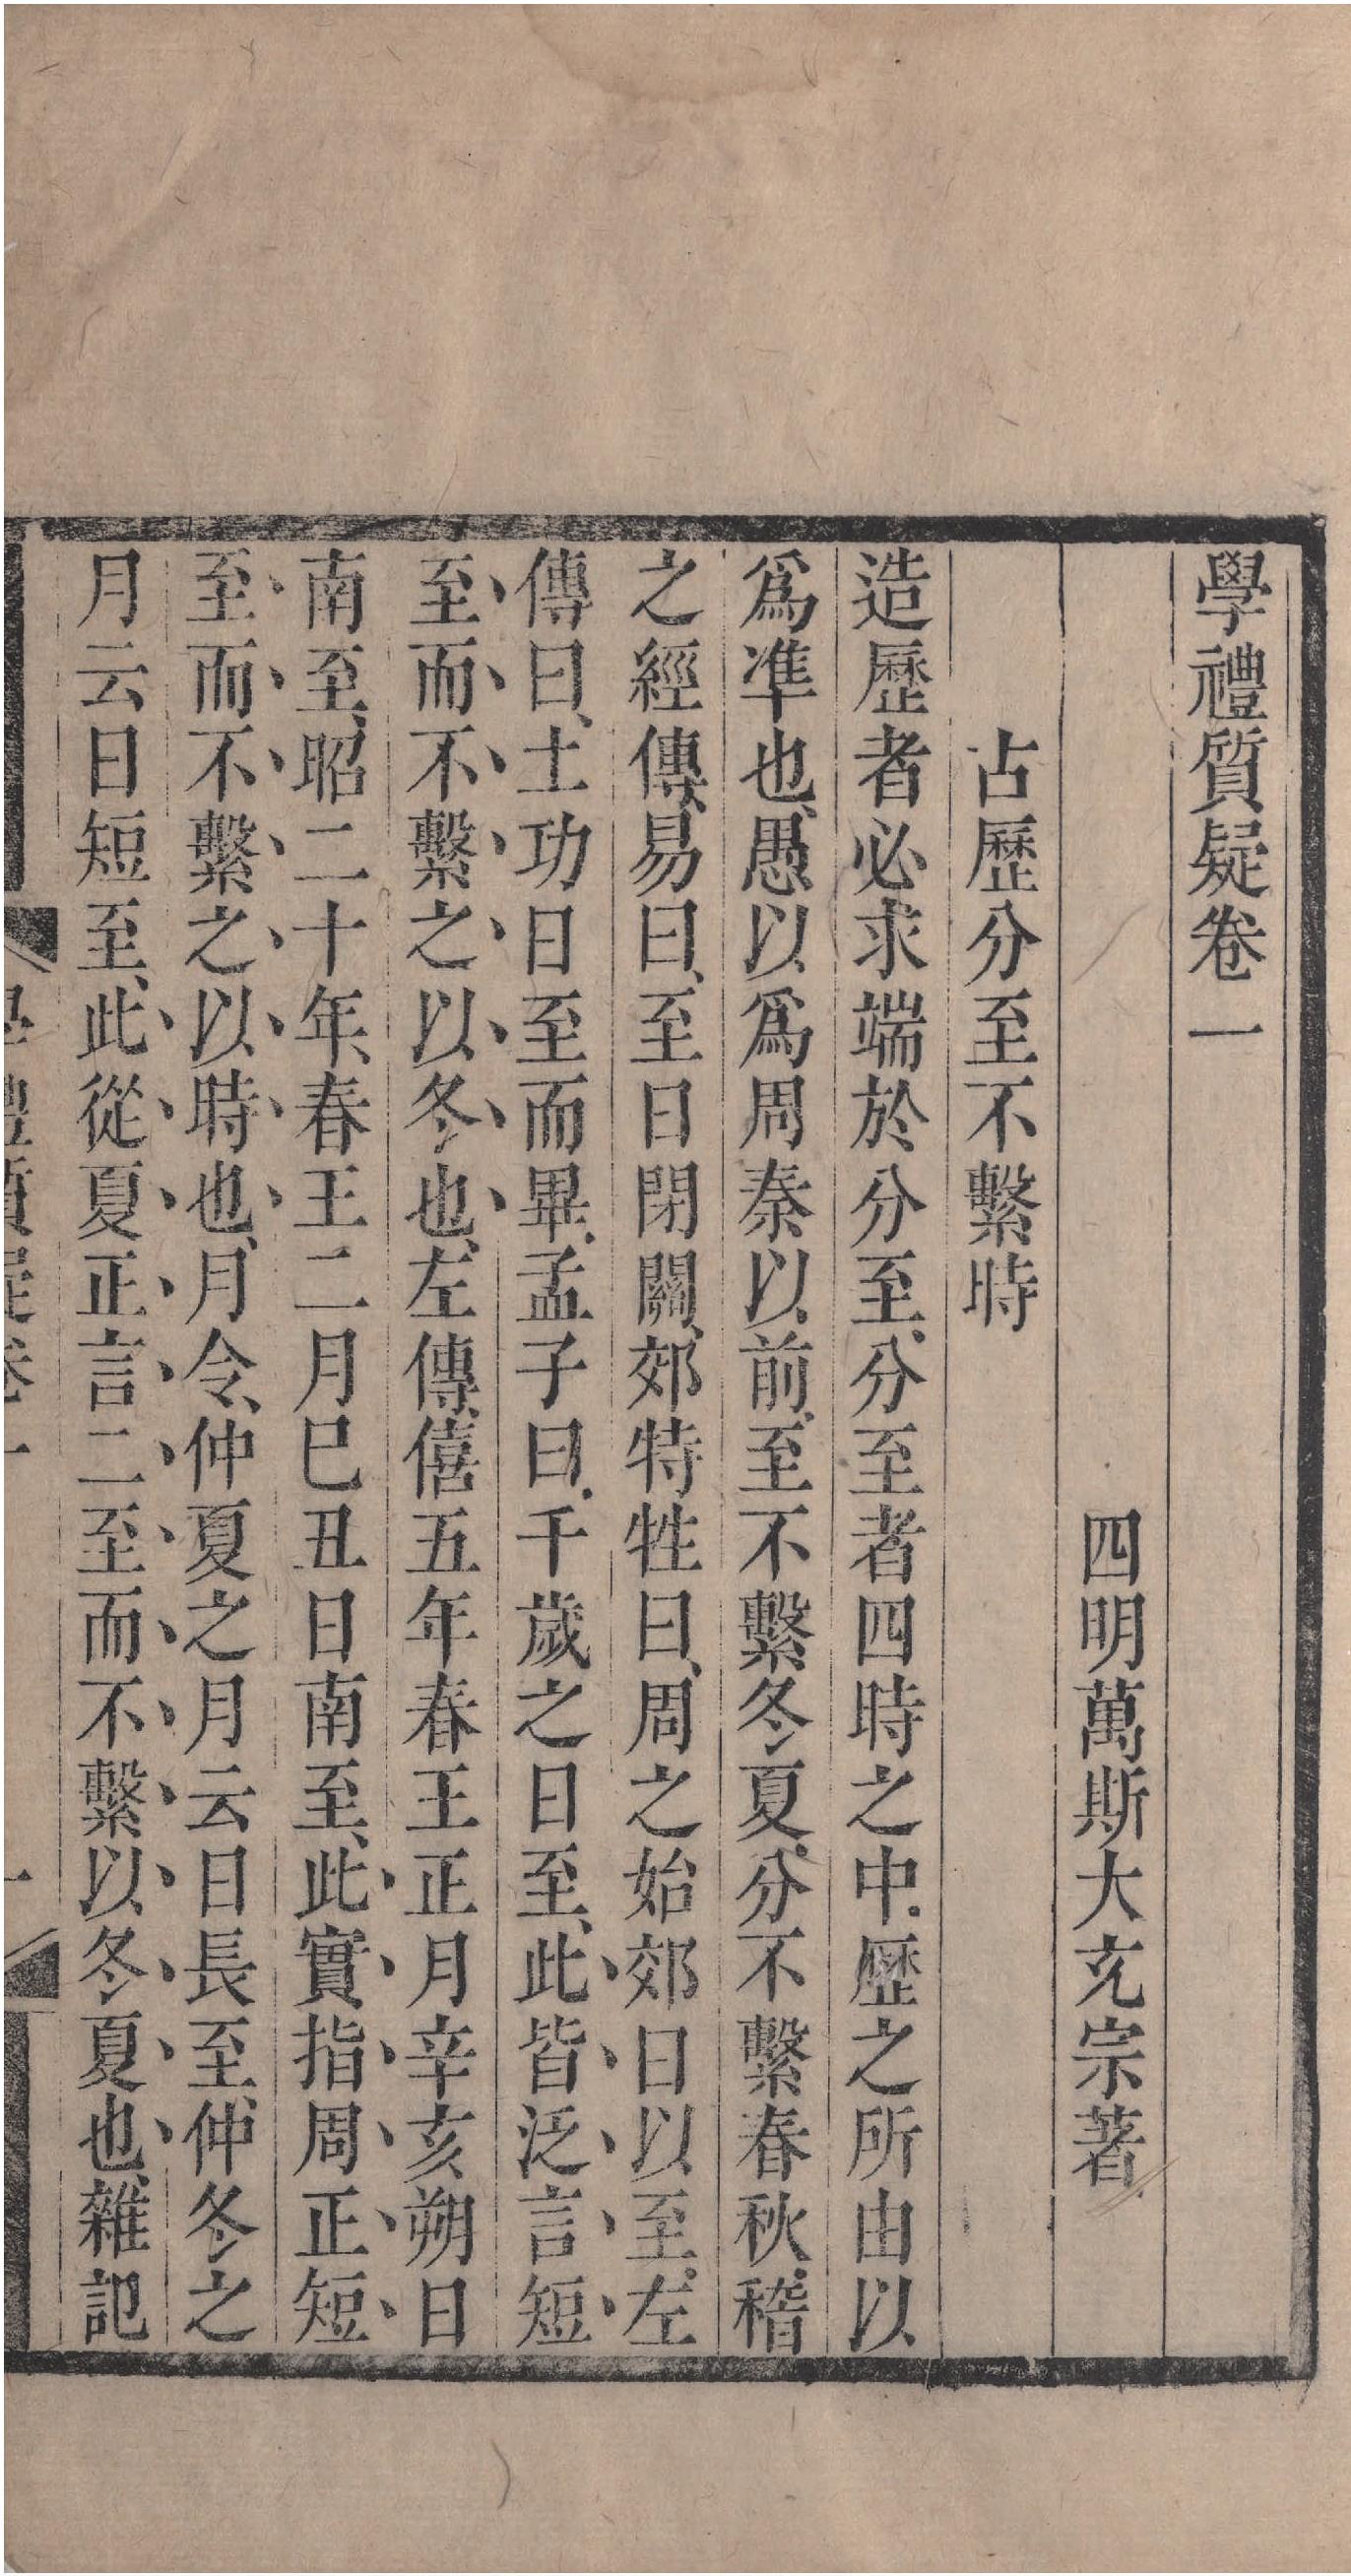 學禮質疑卷一
四明萬斯大充宗著
占歷分至不繫時
造歷者必求端於分至、分至者四時之中、歷之所由以
爲準也、愚以爲周秦以前、至不繫冬夏、分不繫春秋、稽
之經傳、易曰、至日閉關、郊特牲曰、周之始郊日以至、左
傳曰、土功日至而畢、孟子曰、千歲之日至、此皆泛言短
至而不繫之以冬也、左傳、僖五年春王正月辛亥朔日
南至、昭二十年、春王二月巳丑日南至、此實指周正短
至而不繫之以時也、月令、仲夏之月云日長至、仲冬之
月云日短至、此從夏正言二至而不繫以冬夏也、雜記
學禮質疑卷一 一